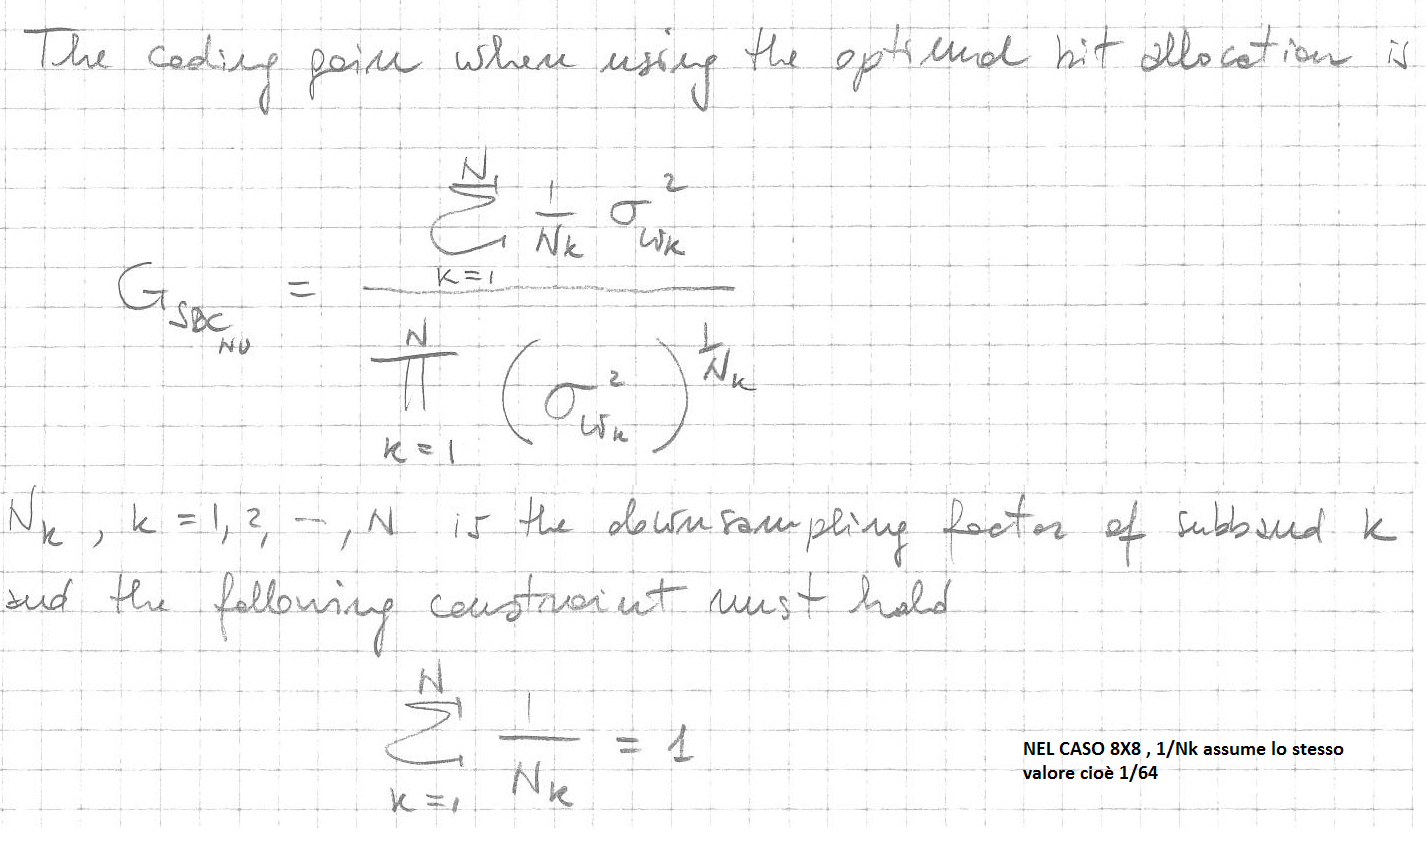 The coding gain when using the optimal bit allocation is
G_{SBC_{NU}} = \frac{\sum_{k=1}^{N} \frac{1}{N_k} \sigma_{w_k}^2}{\prod_{k=1}^{N} \left( \sigma_{w_k}^2 \right)^{\frac{1}{N_k}}}
N_k , k = 1, 2, --, N is the downsampling factor of subband k
and the following constraint must hold
\sum_{k=1}^{N} \frac{1}{N_k} = 1
NEL CASO 8X8 , 1/Nk assume lo stesso
valore cioè 1/64